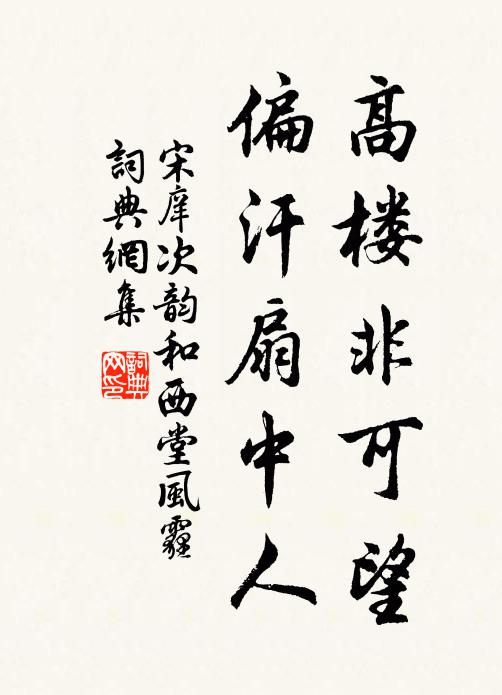 高楼非可望
偏汗扇中人
宋庠次韵和西堂風霾
詞典網集
詞典网印